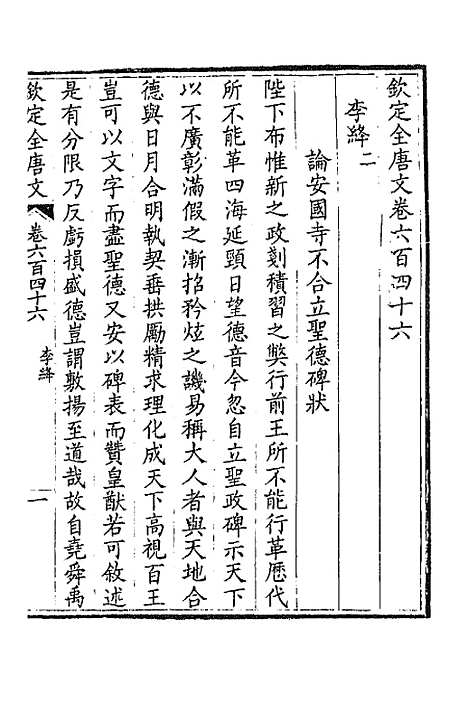 欽定全唐文卷六百四十六
李絳二
論安國寺不合立聖德碑狀
陛下布惟新之政剗積習之弊行前王所不能行革厯代
所不能革四海延頸日望德音今忽自立聖政碑示天下
以不廣彰滿假之漸招矜炫之譏易稱大人者與天地合
德與日月合明執契垂拱勵精求理化成天下高視百王
豈可以文字而盡聖德又安以碑表而贊皇猷若可敘述
是有分限乃反虧損盛德豈謂敷揚至道哉故自堯舜禹
欽定全唐文 卷六百四十六 李絳 一